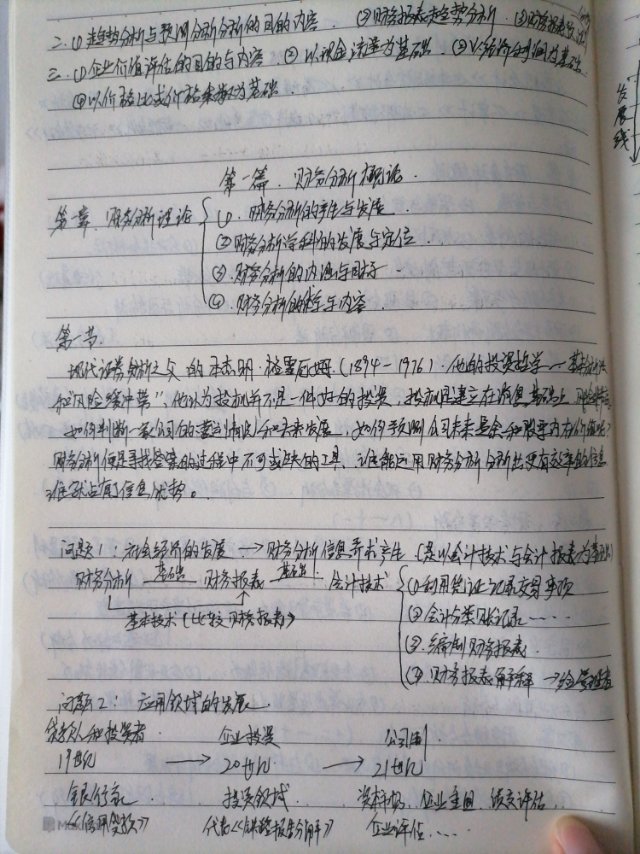 二.(1)趋势分析与预测分析分析的目的内容. (2)财务报表趋势分析 (3)财务报表
三.(1)企业价值评估的目的与内容 (2)以现金流量为基础. (3)以经济利润为基础.
(4)以价格比或价格乘数为基础
第一篇. 财务分析概论.
第一章. 财务分析理论
(1). 财务分析的产生与发展
(2)财务分析学科的发展与定位.
(3).财务分析的内涵与目标
(4). 财务分析的体系与内容.
第一节.
现代证券分析之父 的本杰明·格雷厄姆(1894-1976). 他的投资哲学
和风险缓冲带". 他认为投机并不是一件好的投资, 投机是建立在消息基础上
如何判断一家公司的盈利情况和未来发展, 如何预测公司未来现金和股票内在价值呢?
财务分析便是寻找答案的过程中不可或缺的工具. 谁能运用财务分析分析出更有效率的信息
谁就占有了信息优势。
问题1:社会经济的发展 → 财务分析信息需求产生 (是以会计技术与会计报表为基础)
财务分析 基础 财务报表 基础 会计技术
(1)利用凭证记录交易事项
(2)会计分类账记录……
(3).编制财务报表.
(4).财务报表解释 →
基本技术(比较财务报表)
问题2: 应用领域的发展
贷款人和投资者 企业投资 公司制
19世纪 → 20世纪 → 21世纪
银行家. 投资领域. 资本市场. 企业重组 绩效评估.
《信用贷款》 代表《铁路报告分析》 企业评估……